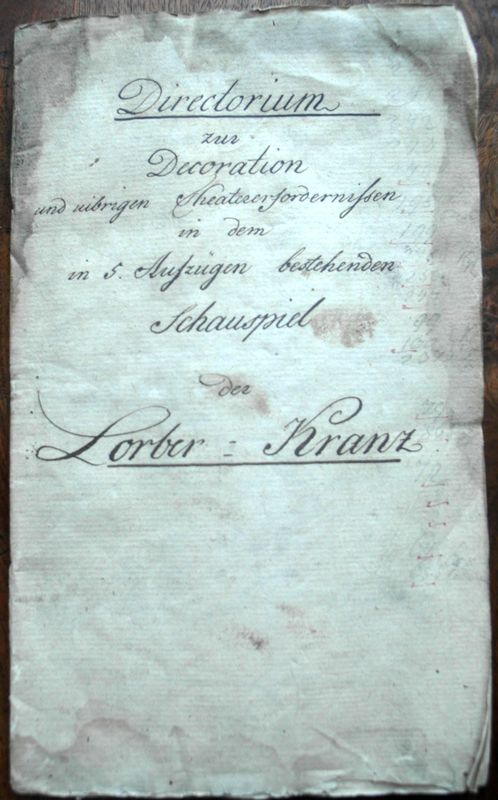 Directorium
zur
Decoration
und uibrigen Theatererfordernissen
in dem
in 5. Aufzügen bestehenden
Schauspiel
der
Lorber = Kranz